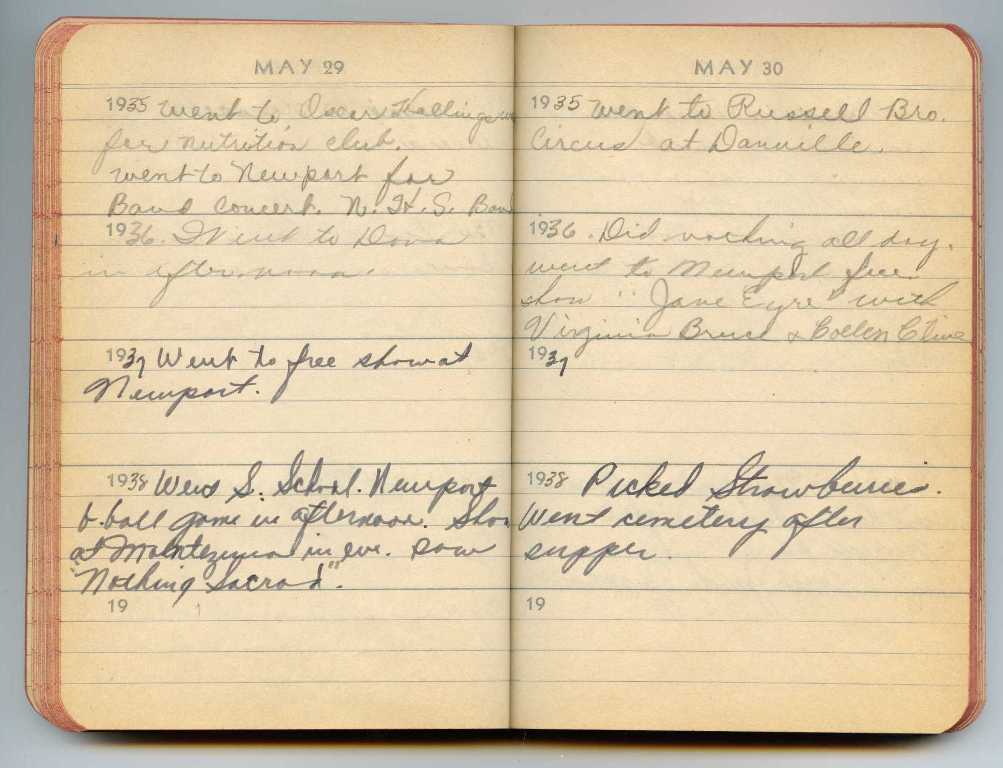 MAY 29
1935 Went to Oscar
for nutrition club.
went to Newport for
Band Concert. N. H. S. Band
1936. Went to Dana
in afternoon.
1937 Went to free show at
Newport.
1938 Went S. School. Newport
b. ball game in afternoon. Show
at Montezuma in eve. saw
"Nothing Sacred".
19
MAY 30
1935 Went to Russell Bro.
Circus at Danville.
1936. Did nothing all day.
went to Newport free
show "Jane Eyre" with
Virginia Bruce & Collen Clive
1937
1938 Picked Strawberries.
Went cemetery after
supper.
19